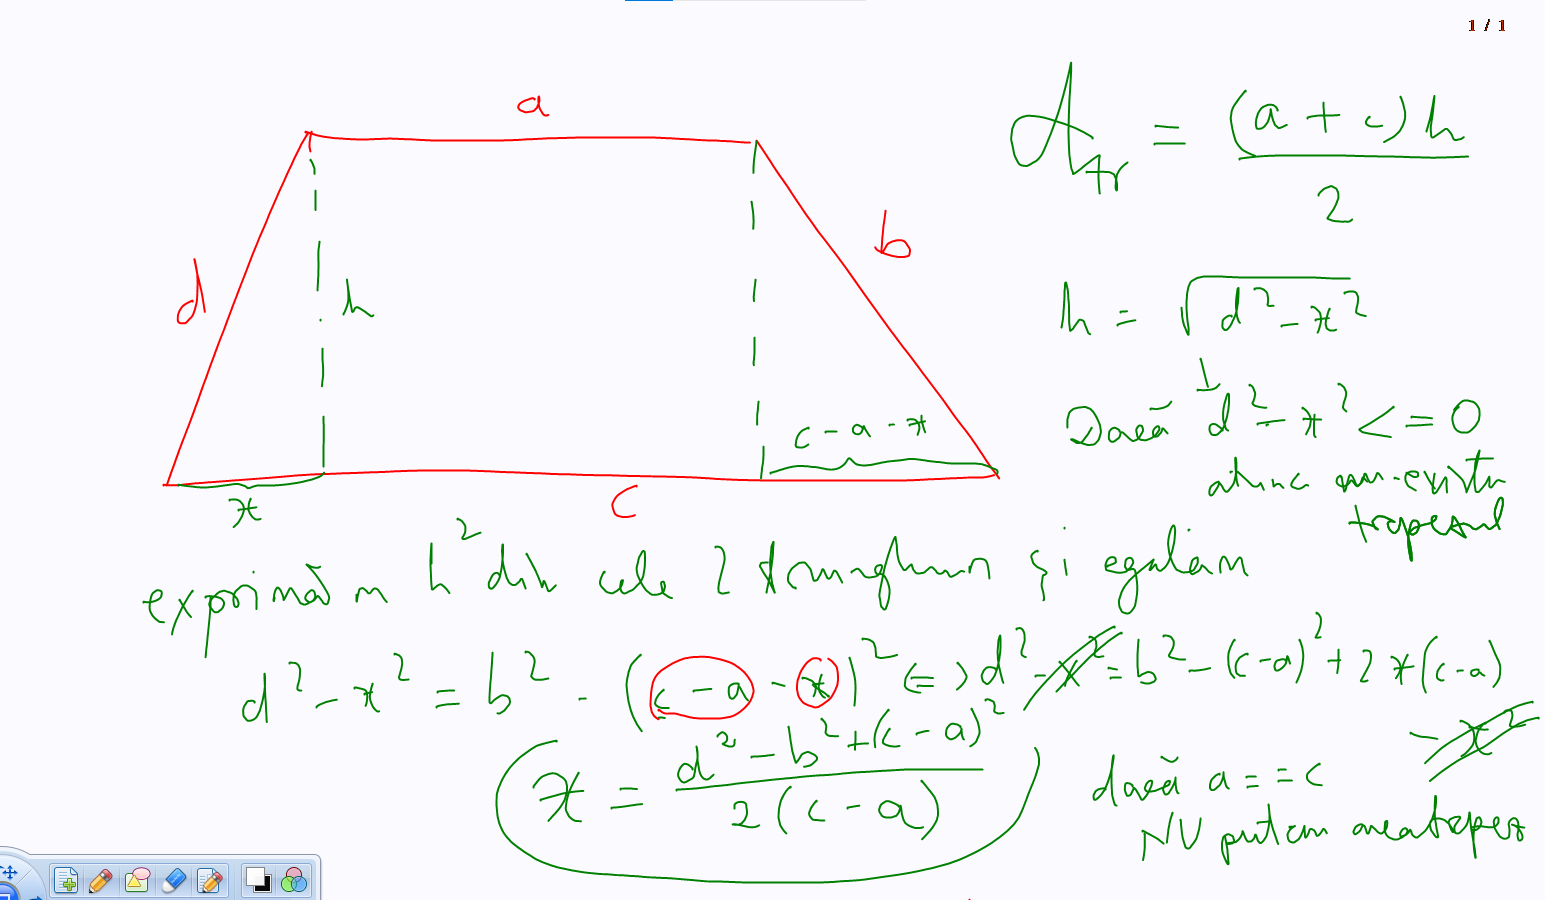 1 / 1
a
A_tr = (a + c) h / 2
d
h
b
h = √(d² - x²)
c - a - x
Dacă d² - x² <= 0
atunci nu există
trapezul
x
c
exprimăm h² din cele 2 triunghiuri și egalăm
d² - x² = b² - (c - a - x)² <=> d² - x² = b² - (c-a)² + 2x(c-a)
- x²
x = d² - b² + (c - a)² / 2(c - a)
dacă a == c
NU putem avea trapez